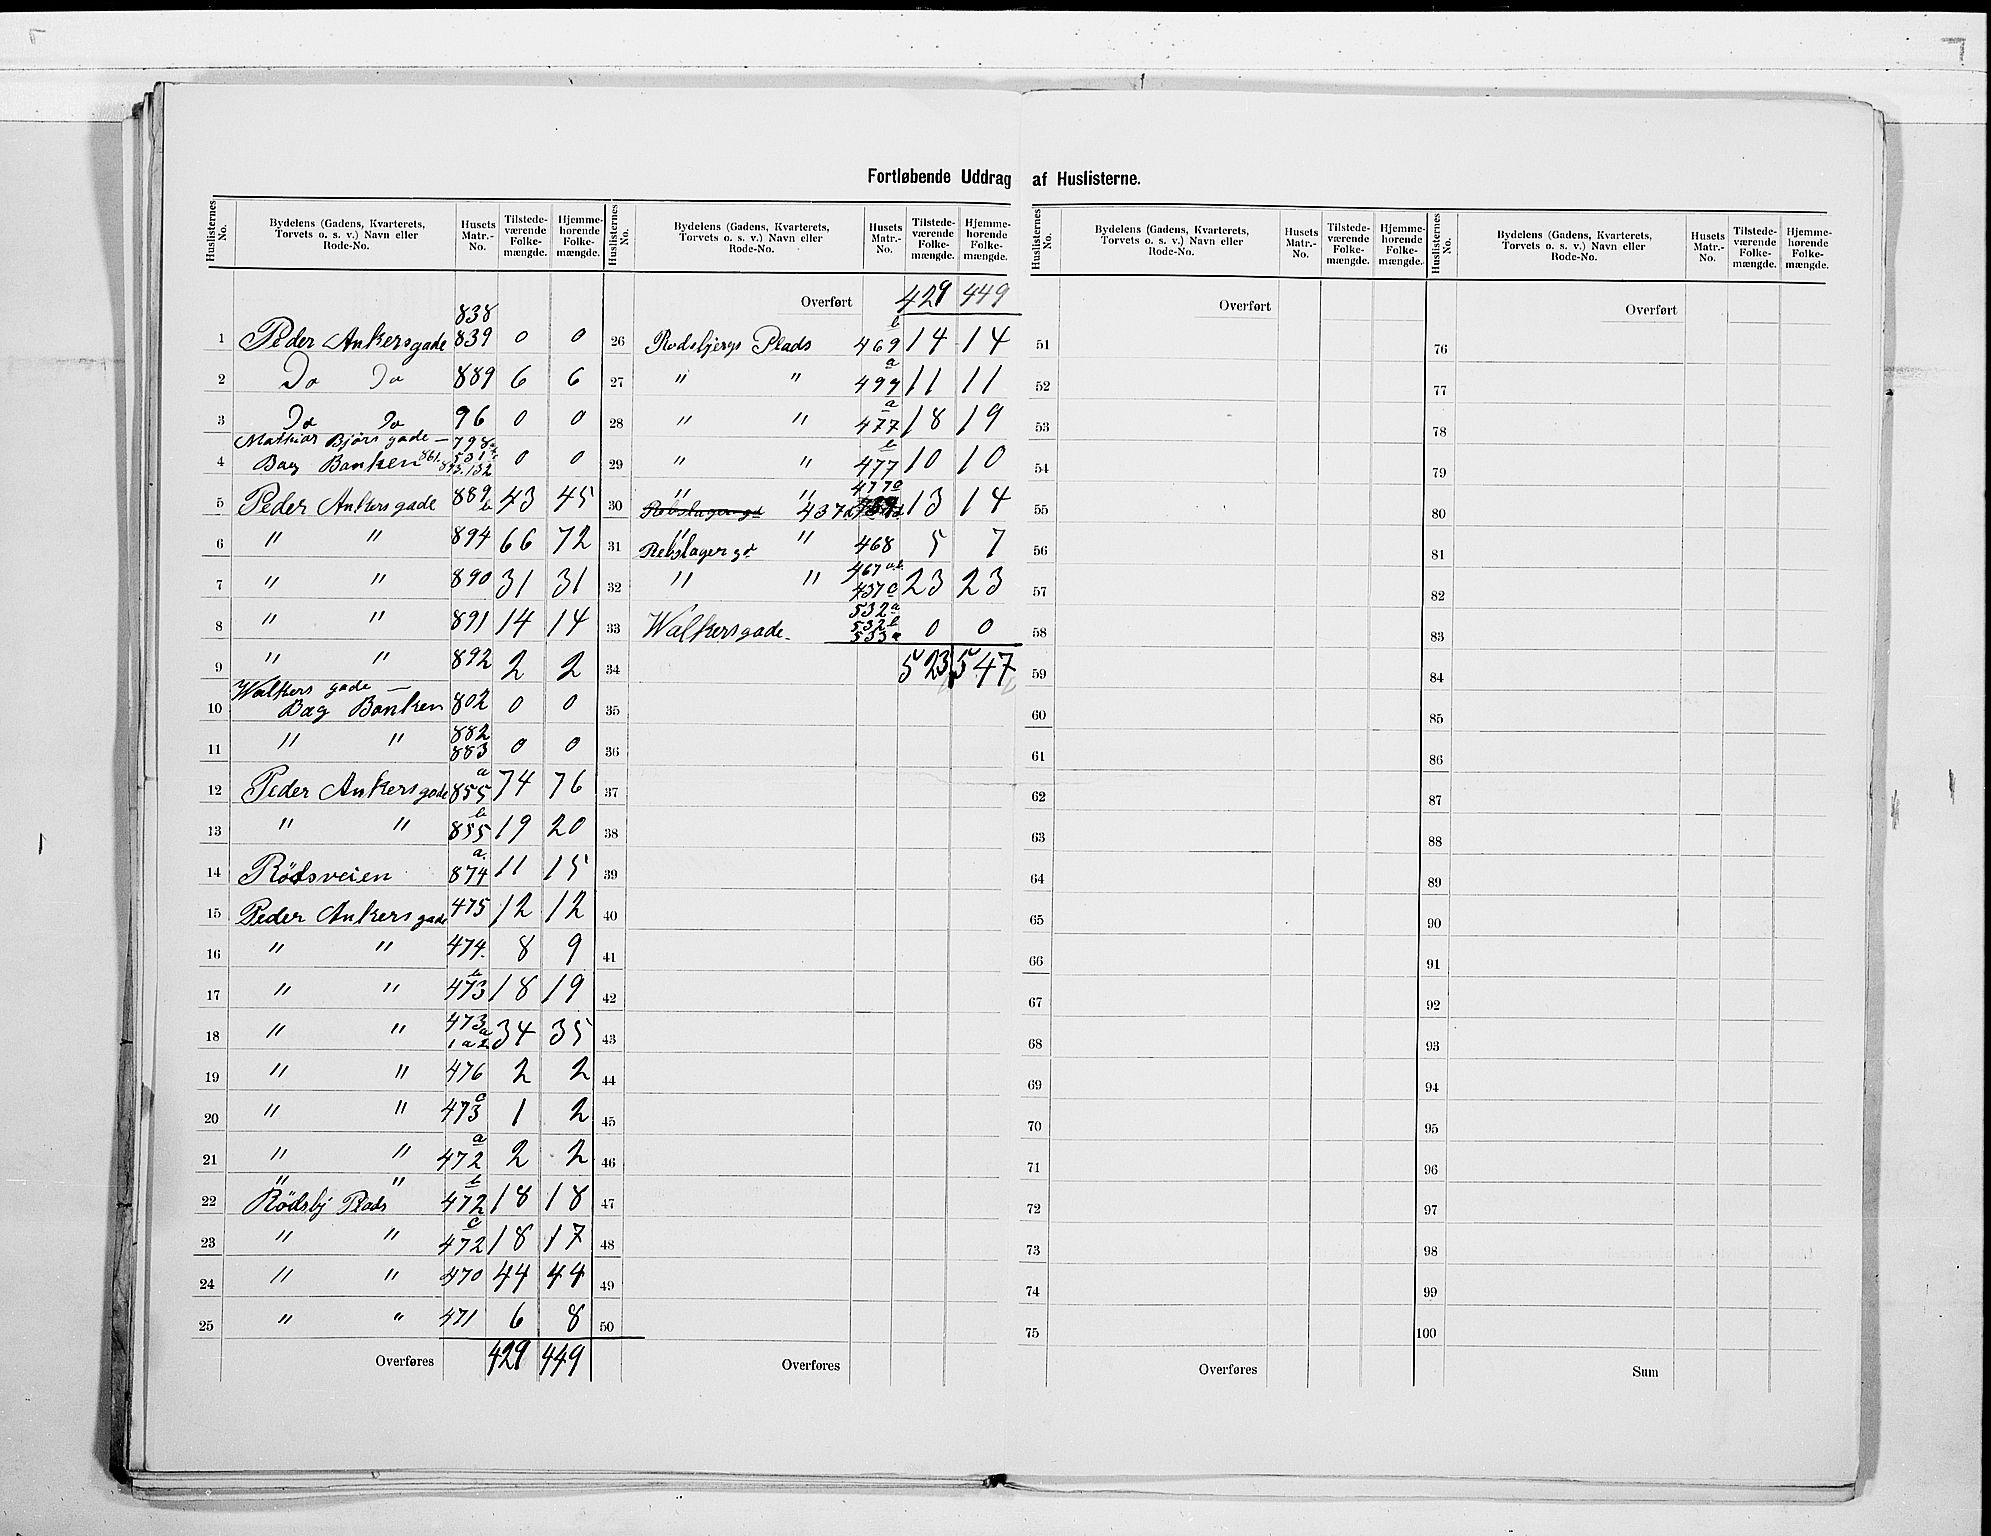 Fortløbende Uddrag af Huslisterne.
Huslisternes No. | Bydelens (Gadens, Kvarterets, Torvets o. s. v.) Navn eller Rode-No. | Husets Matr.-No. | Tilstede-værende Folke-mængde. | Hjemme-hørende Folke-mængde.
1 Peder Ankersgade 838 839 0 0
2 Do Do 889 6 6
3 Do Do 96 0 0
4 Mathias Bjørs gade — Bag Banken 0 0
5 Peder Ankersgade 889 b 43 45
6 " " 894 66 72
7 " " 890 31 31
8 " " 891 14 14
9 " " 892 2 2
10 Walkers gade — Bag Banken 802 0 0
11 " " 882 883 0 0
12 Peder Ankersgade 855 a 74 76
13 " " 855 b 19 20
14 Rödsveien 874 a. 11 15
15 Peder Ankersgade 475 12 12
16 " " 474. 8 9
17 " " 473 b 18 19
18 " " 473 a 1 a 2 34 35
19 " " 476 2 2
20 " " 473 c 1 2
21 " " 472 a 2 2
22 " " Rödsbj Plads 472 b 18 18
23 " " 472 c 18 17
24 " " 470 44 44
25 " " 471 6 8
Overføres 429 449
Huslisternes No. | Bydelens (Gadens, Kvarterets, Torvets o. s. v.) Navn eller Rode-No. | Husets Matr.-No. | Tilstede-værende Folke-mængde. | Hjemme-hørende Folke-mængde.
Overført 429 449
26 Rodsbjergs Plads 469 b 14 14
27 " " 499 a 11 11
28 " " 477 a 18 19
29 " " 477 b 10 10
30 " " Rebslagergd 477 a 13 14
31 " " Rebslagergd 468 5 7
32 " " 467 a.b. 437 a 23 23
33 Walkersgade. 532 a 532 b 533 a 0 0
34 523 547
35
36
37
38
39
40
41
42
43
44
45
46
47
48
49
50
Overføres
Huslisternes No. | Bydelens (Gadens, Kvarterets, Torvets o. s. v.) Navn eller Rode-No. | Husets Matr.-No. | Tilstede-værende Folke-mængde. | Hjemme-hørende Folke-mængde.
Overført
51
52
53
54
55
56
57
58
59
60
61
62
63
64
65
66
67
68
69
70
71
72
73
74
75
Overføres
Huslisternes No. | Bydelens (Gadens, Kvarterets, Torvets o. s. v.) Navn eller Rode-No. | Husets Matr.-No. | Tilstede-værende Folke-mængde. | Hjemme-hørende Folke-mængde.
Overført
76
77
78
79
80
81
82
83
84
85
86
87
88
89
90
91
92
93
94
95
96
97
98
99
100
Sum